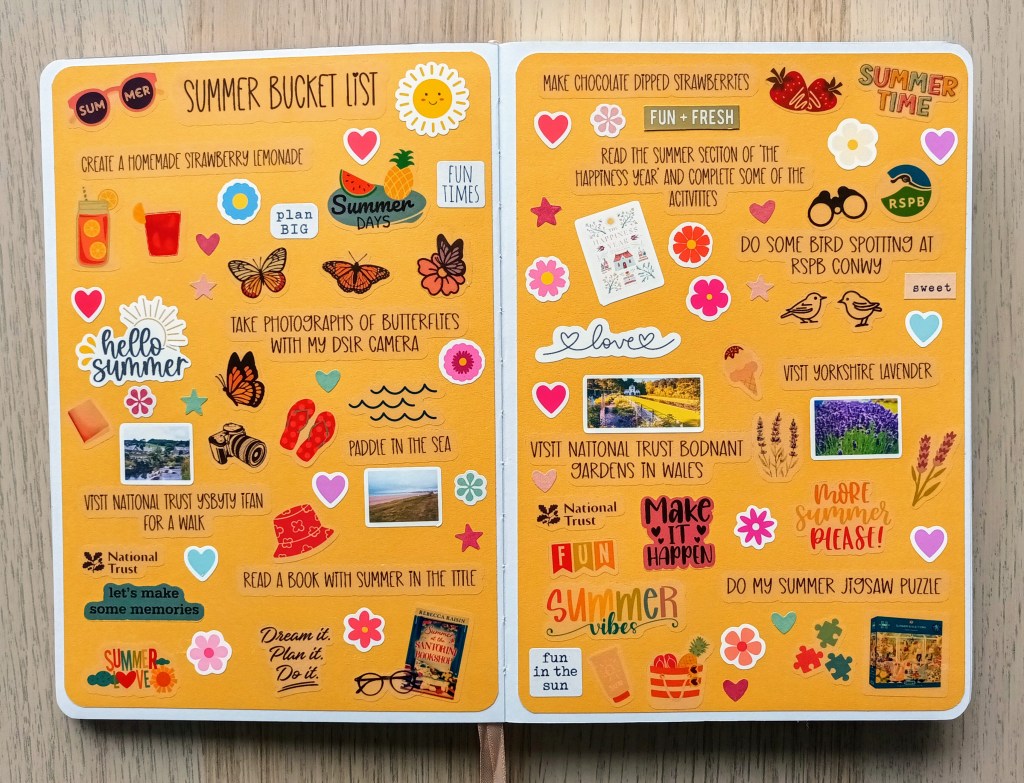 SUM MER
SUMMER BUCKET LIST
CREATE A HOMEMADE STRAWBERRY LEMONADE
Summer
DAYS
FUN
TIMES
plan
BIG
hello
summer
TAKE PHOTOGRAPHS OF BUTTERFLIES
WITH MY DSLR CAMERA
PADDLE IN THE SEA
VISIT NATIONAL TRUST YSBYTY IFAN
FOR A WALK
National
Trust
let's make
some memories
READ A BOOK WITH SUMMER IN THE TITLE
SUMMER
LOVE
Dream it.
Plan it.
Do it.
REBECCA RAISIN
Summer
at the
SANTORINI
BOOKSHOP
MAKE CHOCOLATE DIPPED STRAWBERRIES
SUMMER
TIME
FUN + FRESH
READ THE SUMMER SECTION OF 'THE
HAPPINESS YEAR' AND COMPLETE SOME OF THE
ACTIVITIES
THE
HAPPINESS
YEAR
RSPB
DO SOME BIRD SPOTTING AT
RSPB CONWY
sweet
love
VISIT YORKSHIRE LAVENDER
VISIT NATIONAL TRUST BODNANT
GARDENS IN WALES
National
Trust
Make
IT
HAPPEN
MORE
summer
PLEASE!
FUN
SUMMER
vibes
DO MY SUMMER JIGSAW PUZZLE
fun
in the
sun